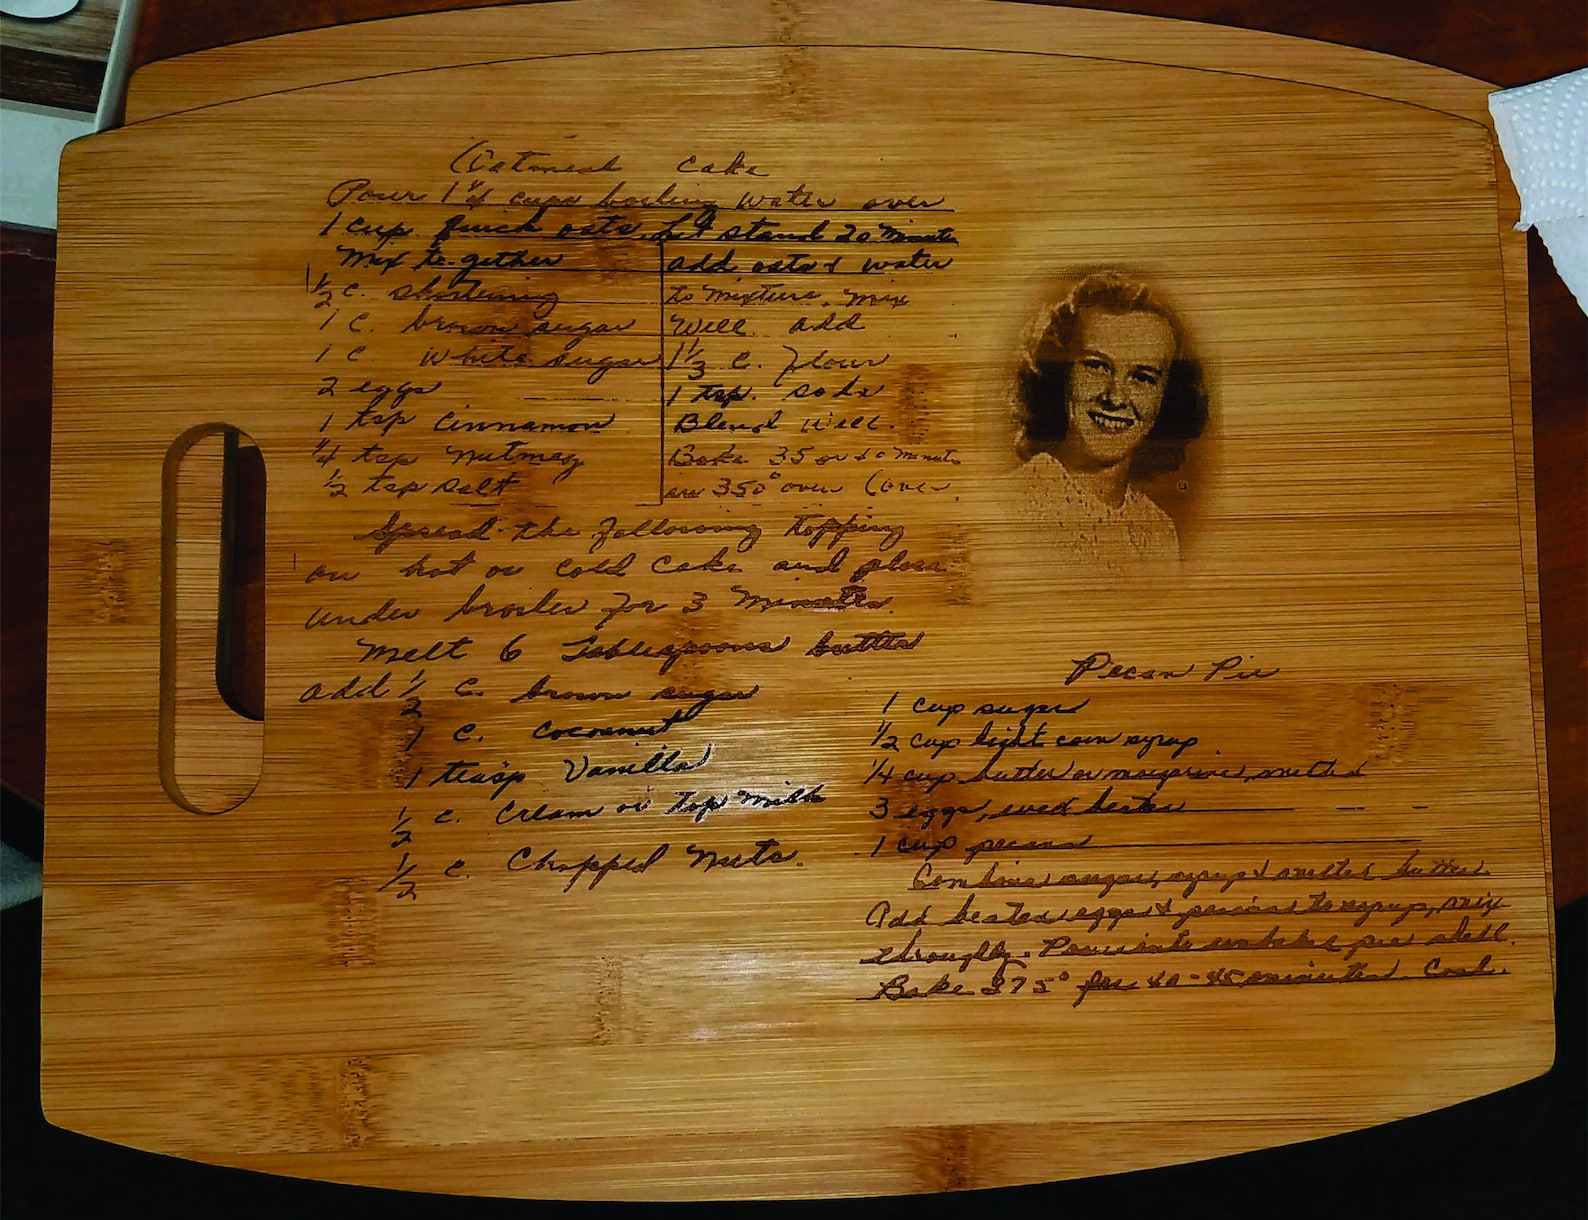 Oatmeal Cake
Pour 1 1/4 cups boiling water over
1 cup quick oats. Let stand 20 Minutes
Mix to-gether
1/2 c. shortening
1 c. brown sugar
1 c. white sugar
2 eggs
1 tsp cinnamon
1/4 tsp nutmeg
1/2 tsp salt
add oats & water
to mixture. Mix
Well. add
1 1/3 c. flour
1 tsp. soda
Blend well.
Bake 35 or 40 Minutes
in 350° oven (over
Spread the following topping
on hot or cold cake and place
under broiler for 3 Minutes.
Melt 6 Tablespoons butter
add 1/2 c. brown sugar
1 c. Cocoanut
1 teasp Vanilla
1/2 c. Cream or Top milk
1/2 c. Chopped Nuts.
Pecan Pie
1 cup sugar
1/2 cup light corn syrup
1/4 cup butter or margarine, melted
3 eggs, well beaten
1 cup pecans
Combine sugar, syrup & melted butter.
Add beaten eggs & pecans to syrup, mix
throughly. Pour into unbaked pie shell.
Bake 375° for 40-45 minutes. Cool.